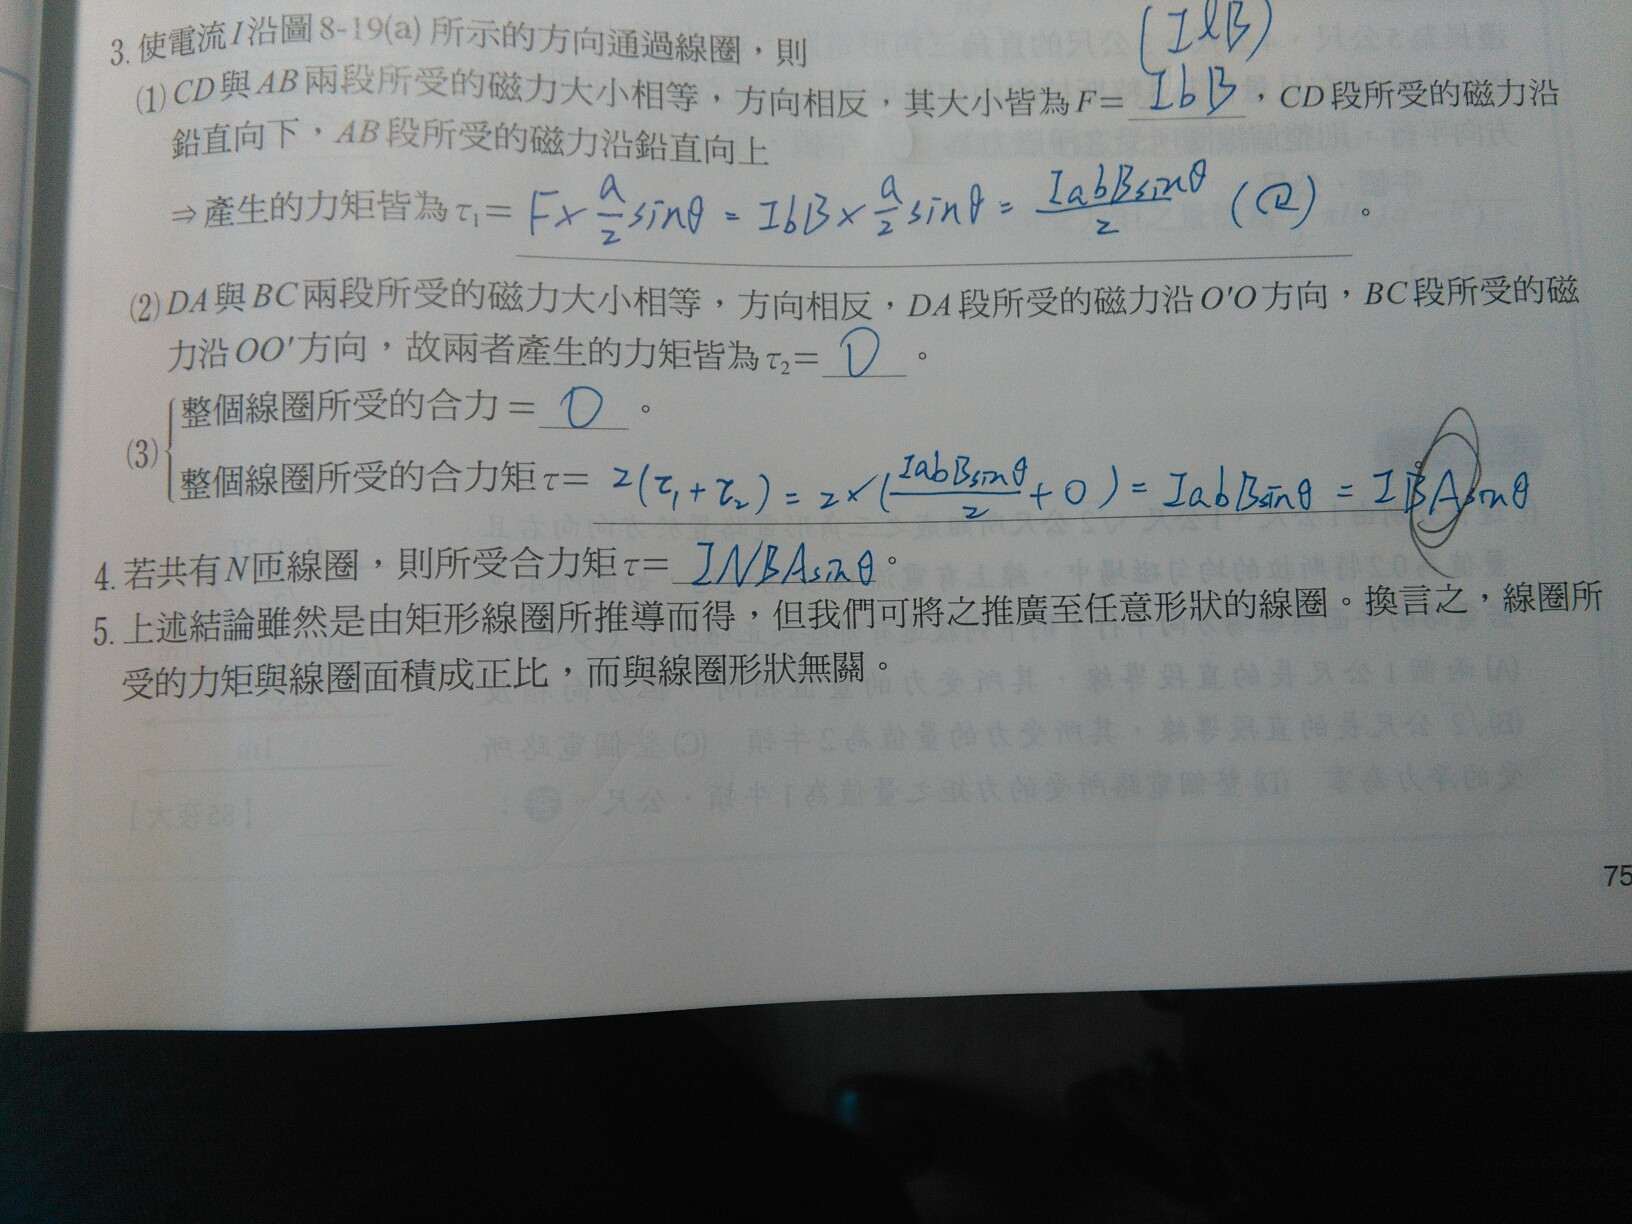 (IℓB)
3. 使電流I沿圖8-19(a)所示的方向通過線圈，則
(1) CD與AB兩段所受的磁力大小相等，方向相反，其大小皆為F= IbB ，CD段所受的磁力沿
鉛直向下，AB段所受的磁力沿鉛直向上
⇒產生的力矩皆為τ₁= F× a/2 sinθ = IbB× a/2 sinθ = IabBsinθ/2 。
(2) DA與BC兩段所受的磁力大小相等，方向相反，DA段所受的磁力沿O'O方向，BC段所受的磁
力沿OO'方向，故兩者產生的力矩皆為τ₂= 0 。
(3) 整個線圈所受的合力= 0 。
整個線圈所受的合力矩τ= 2(τ₁+τ₂) = 2×(IabBsinθ/2 + 0) = IabBsinθ = IBAsinθ
4. 若共有N匝線圈，則所受合力矩τ= INBAsinθ 。
5. 上述結論雖然是由矩形線圈所推導而得，但我們可將之推廣至任意形狀的線圈。換言之，線圈所
受的力矩與線圈面積成正比，而與線圈形狀無關。
75